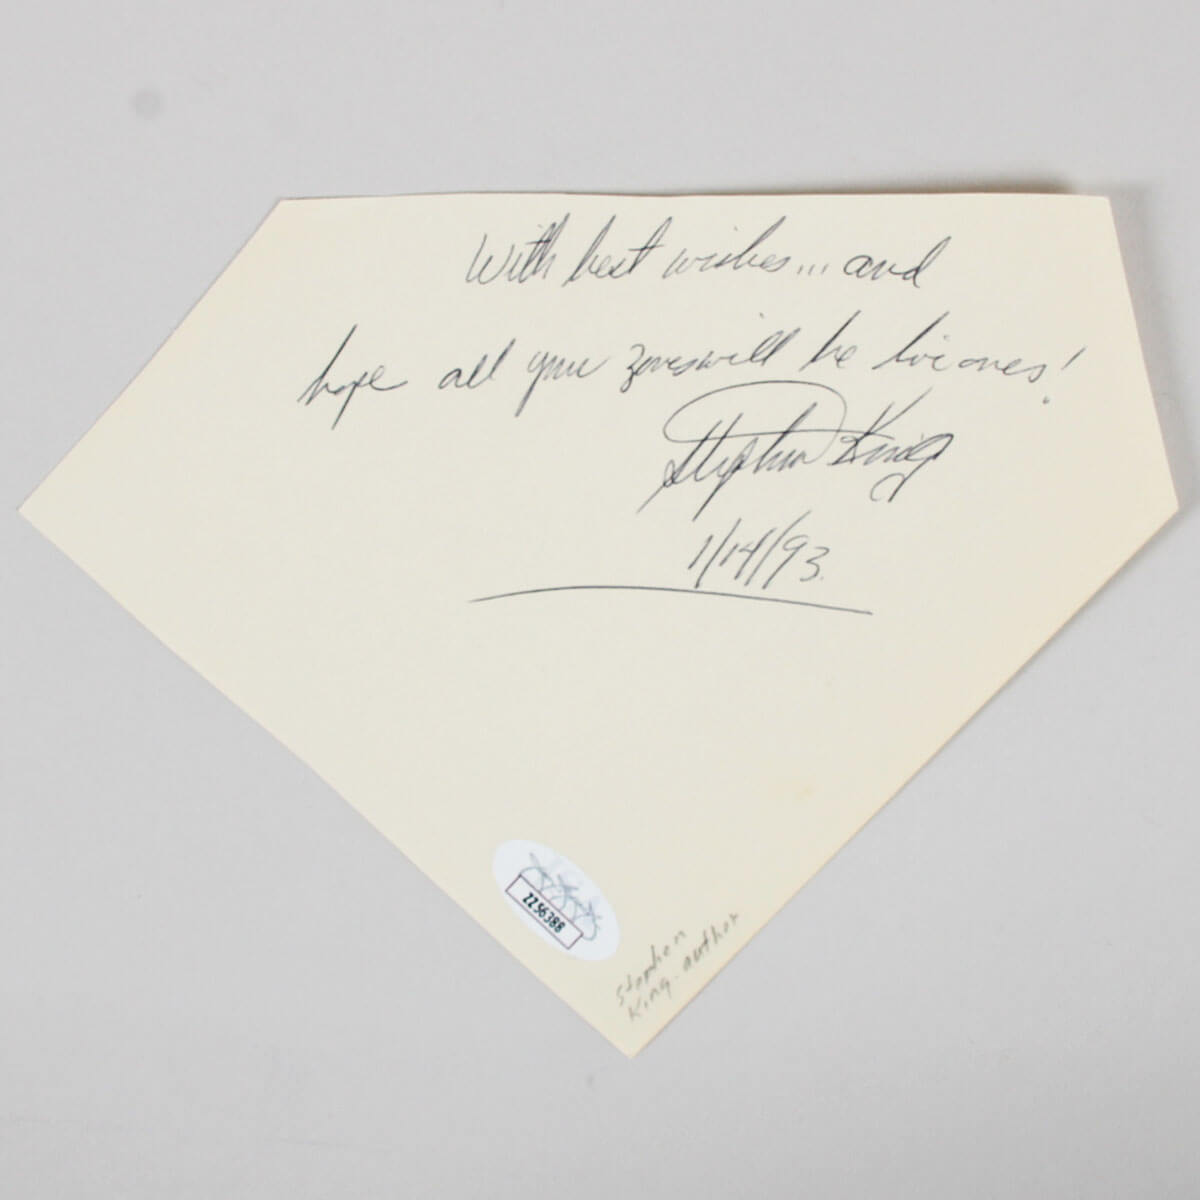 With best wishes... and
hope all your zones will be live ones!
Stephen King
1/14/93.
ZZ56388
Stephen
King. author